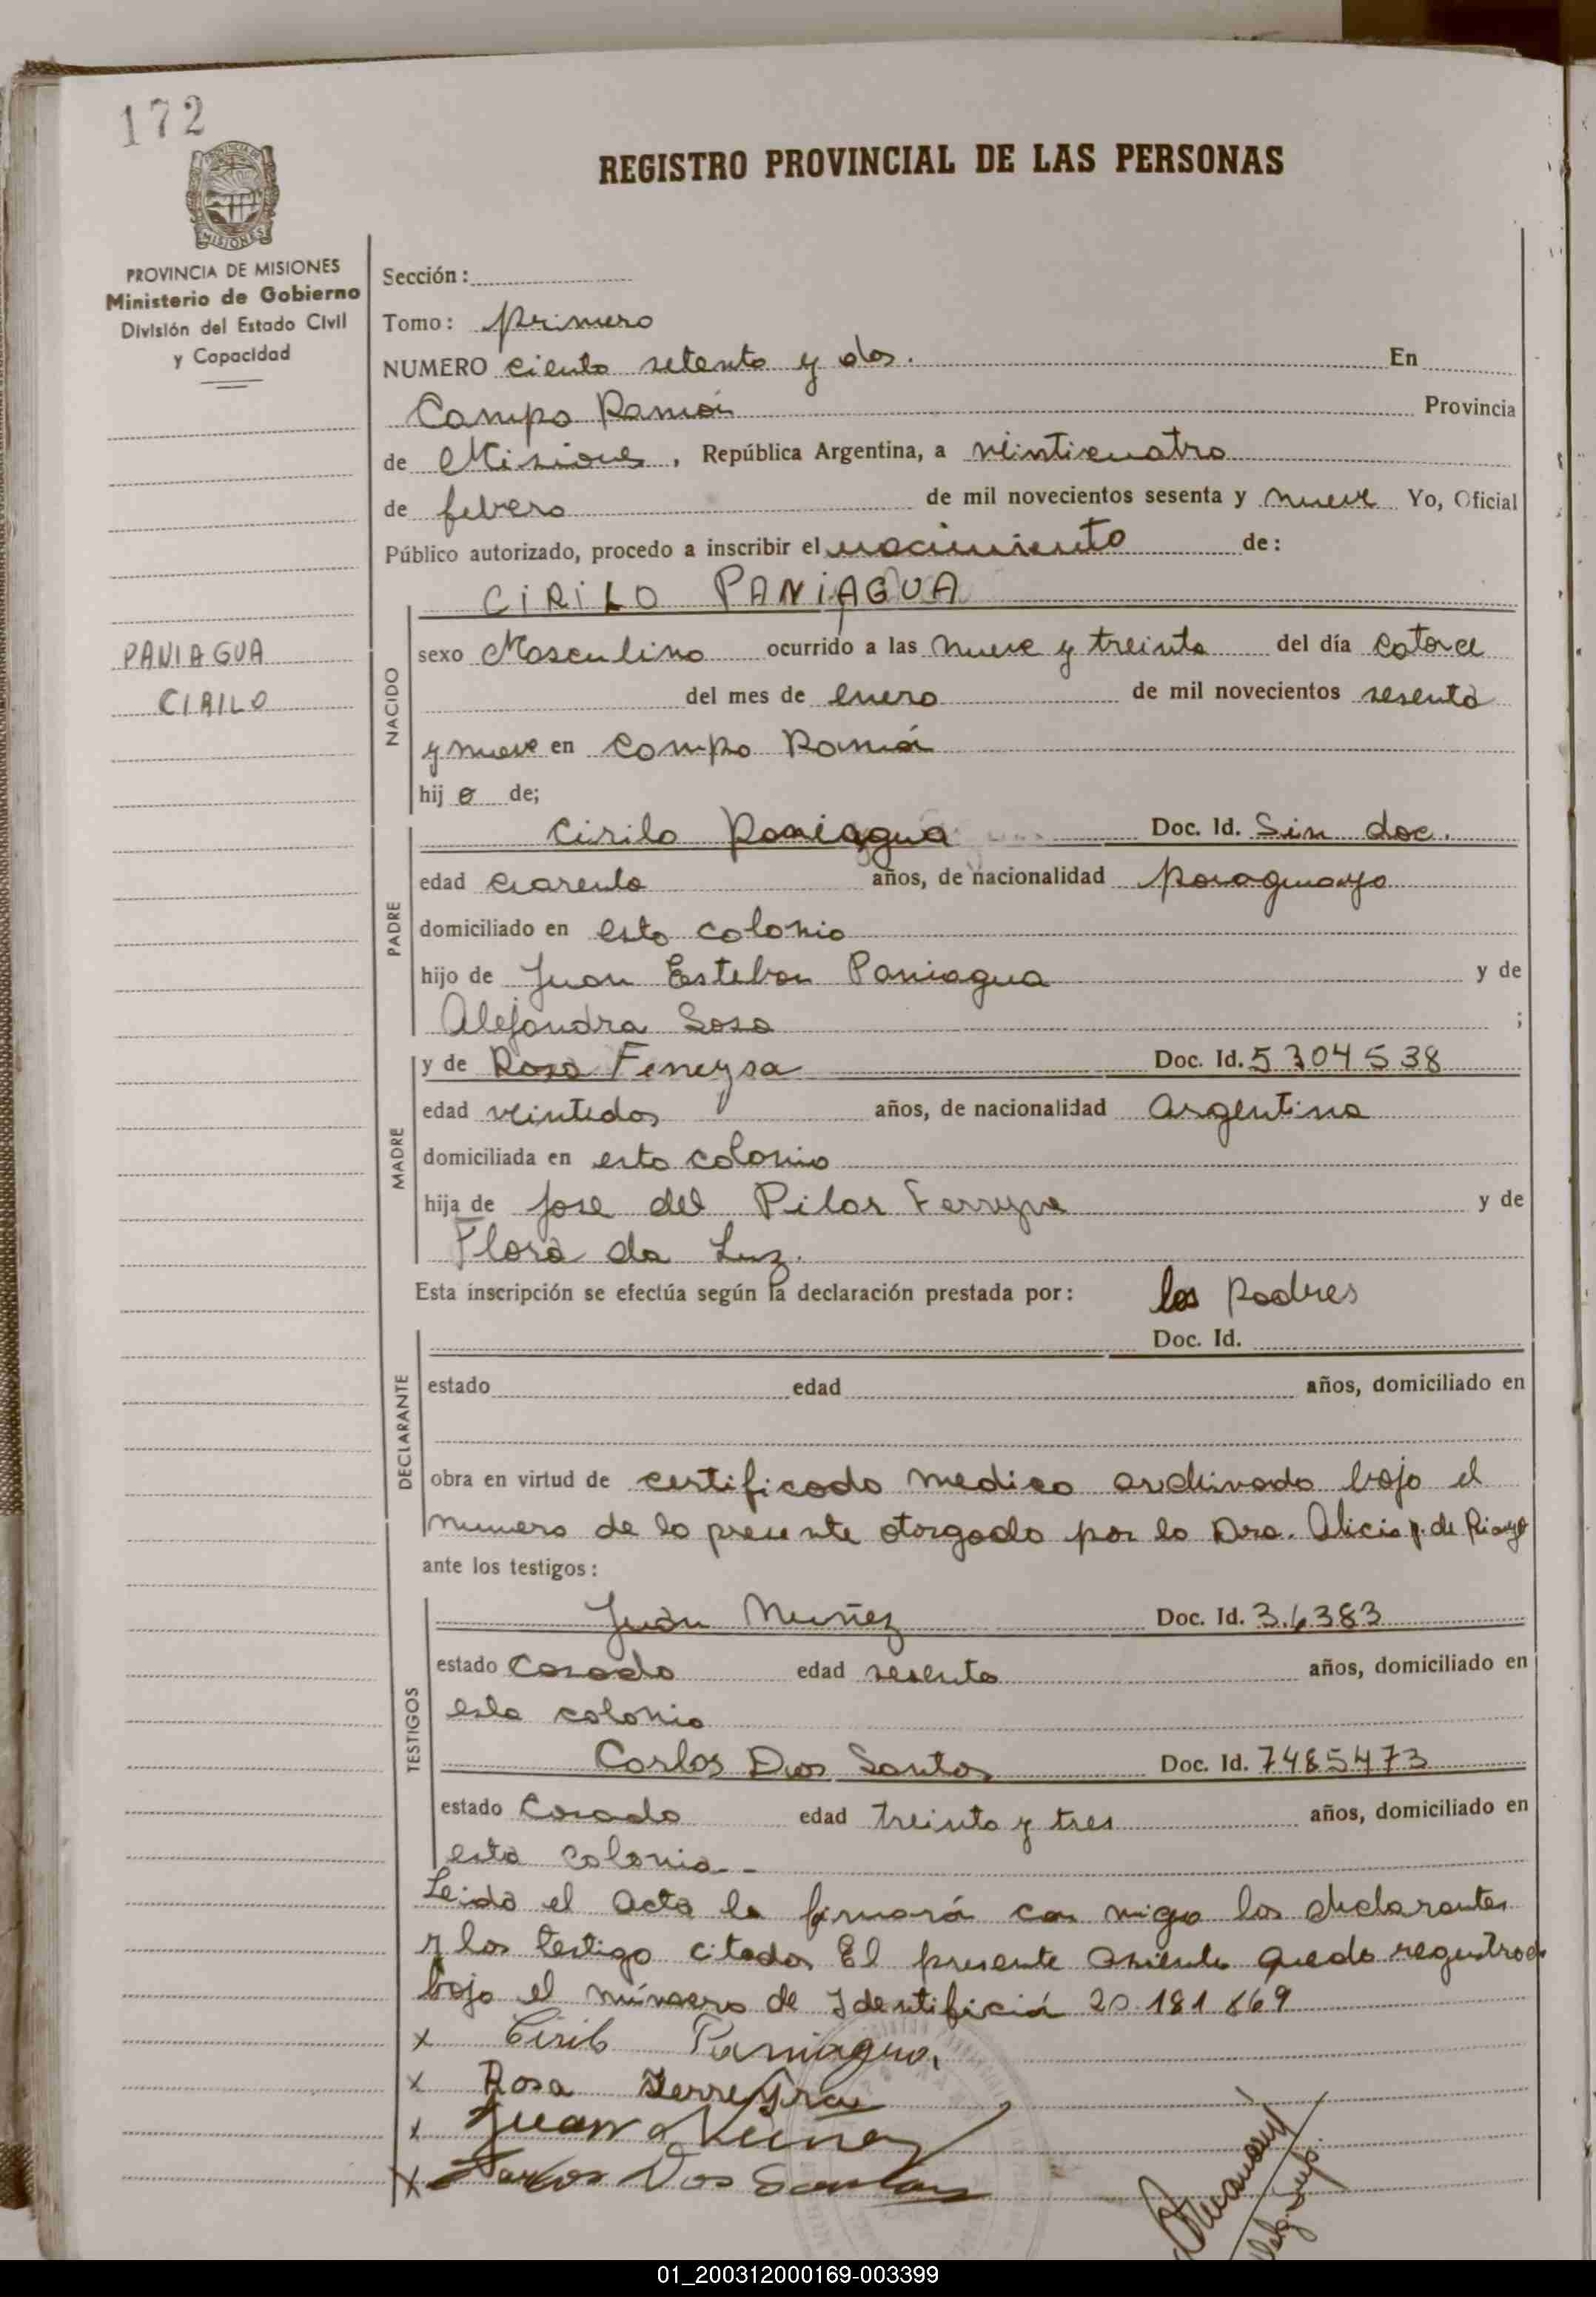 172
PROVINCIA DE
MISIONES
REGISTRO PROVINCIAL DE LAS PERSONAS
PROVINCIA DE MISIONES
Ministerio de Gobierno
División del Estado Civil
y Capacidad
PANIAGUA
CIRILO
Sección:
Tomo: primero
NUMERO ciento setenta y dos. En
Campo Ramón Provincia
de Misiones, República Argentina, a veinticuatro
de febrero de mil novecientos sesenta y nueve Yo, Oficial
Público autorizado, procedo a inscribir el nacimiento de:
CIRILO PANIAGUA
NACIDO
sexo Masculino ocurrido a las nueve y treinta del día catorce
del mes de enero de mil novecientos sesenta
y nueve en Campo Ramón
hijo de;
PADRE
Cirilo Paniagua Doc. Id. Sin doc.
edad cuarenta años, de nacionalidad paraguayo
domiciliado en esta colonia
hijo de Juan Esteban Paniagua y de
Alejandra Sosa ;
MADRE
y de Rosa Ferreyra Doc. Id. 5304538
edad veintedos años, de nacionalidad Argentina
domiciliada en esta colonia
hija de Jose del Pilar Ferreyra y de
Flora da Luz.
Esta inscripción se efectúa según la declaración prestada por: los padres
DECLARANTE
Doc. Id.
estado edad años, domiciliado en
obra en virtud de certificado medico archivado bajo el
numero de la presente otorgado por la Dra. Alicia de
ante los testigos:
TESTIGOS
Juan Nuñez Doc. Id.
estado Casado edad sesenta años, domiciliado en
esta colonia
Carlos Dos Santos Doc. Id. 7485473
estado Casado edad treinta y tres años, domiciliado en
esta colonia -
Leida el Acta la firmará con migo los declarantes
y los testigo citados El presente asiento queda registrado
bajo el número de Identificiá 20.181.669
x Cirilo Paniagua.
x Rosa Ferreyra
x Juan Nuñez
x Carlos Dos Santos
01_200312000169-003399